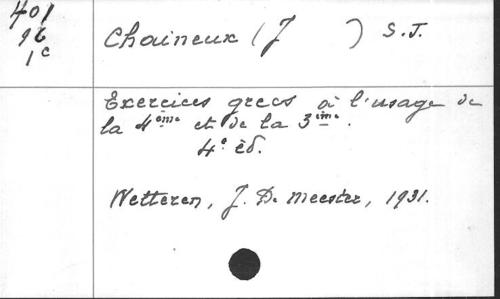 401
96
1c
Chaineux (J ) S.J.
Exercices grecs à l'usage de
la 4ème et de la 3ème.
4e éd.
Wetteren, J. De Meester, 1931.